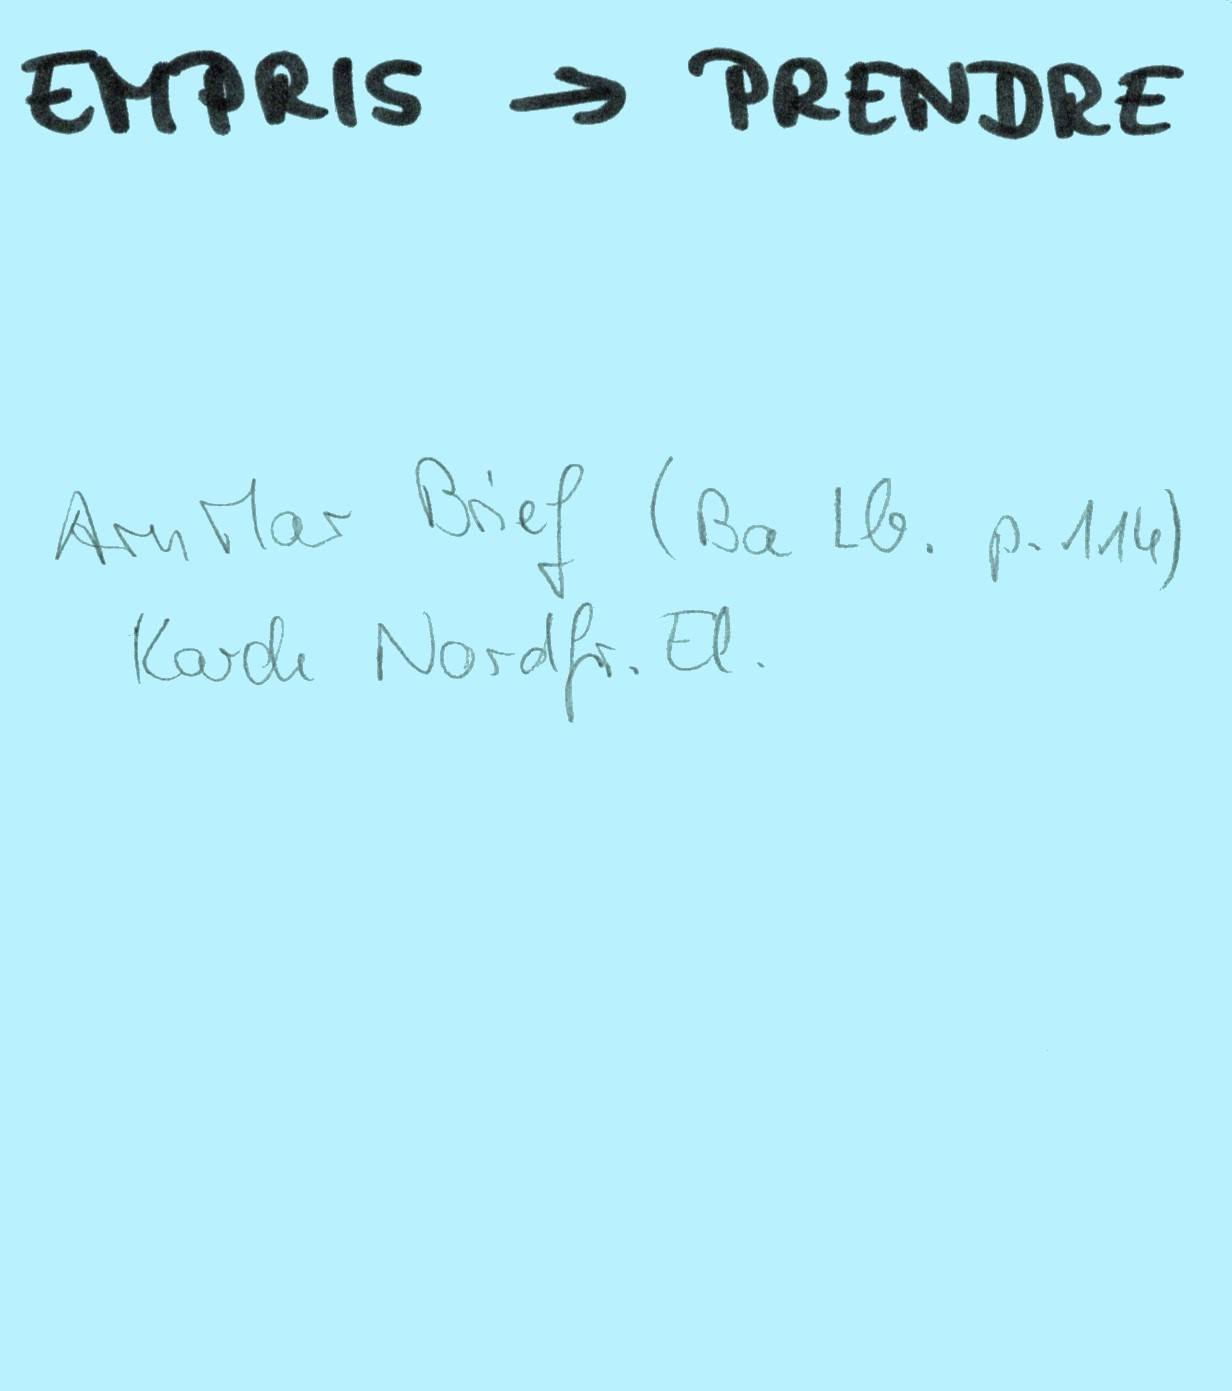 EMPRIS → PRENDRE
ArnMar Brief (Ba Lb. p. 114)
Karch Nordfr. El.